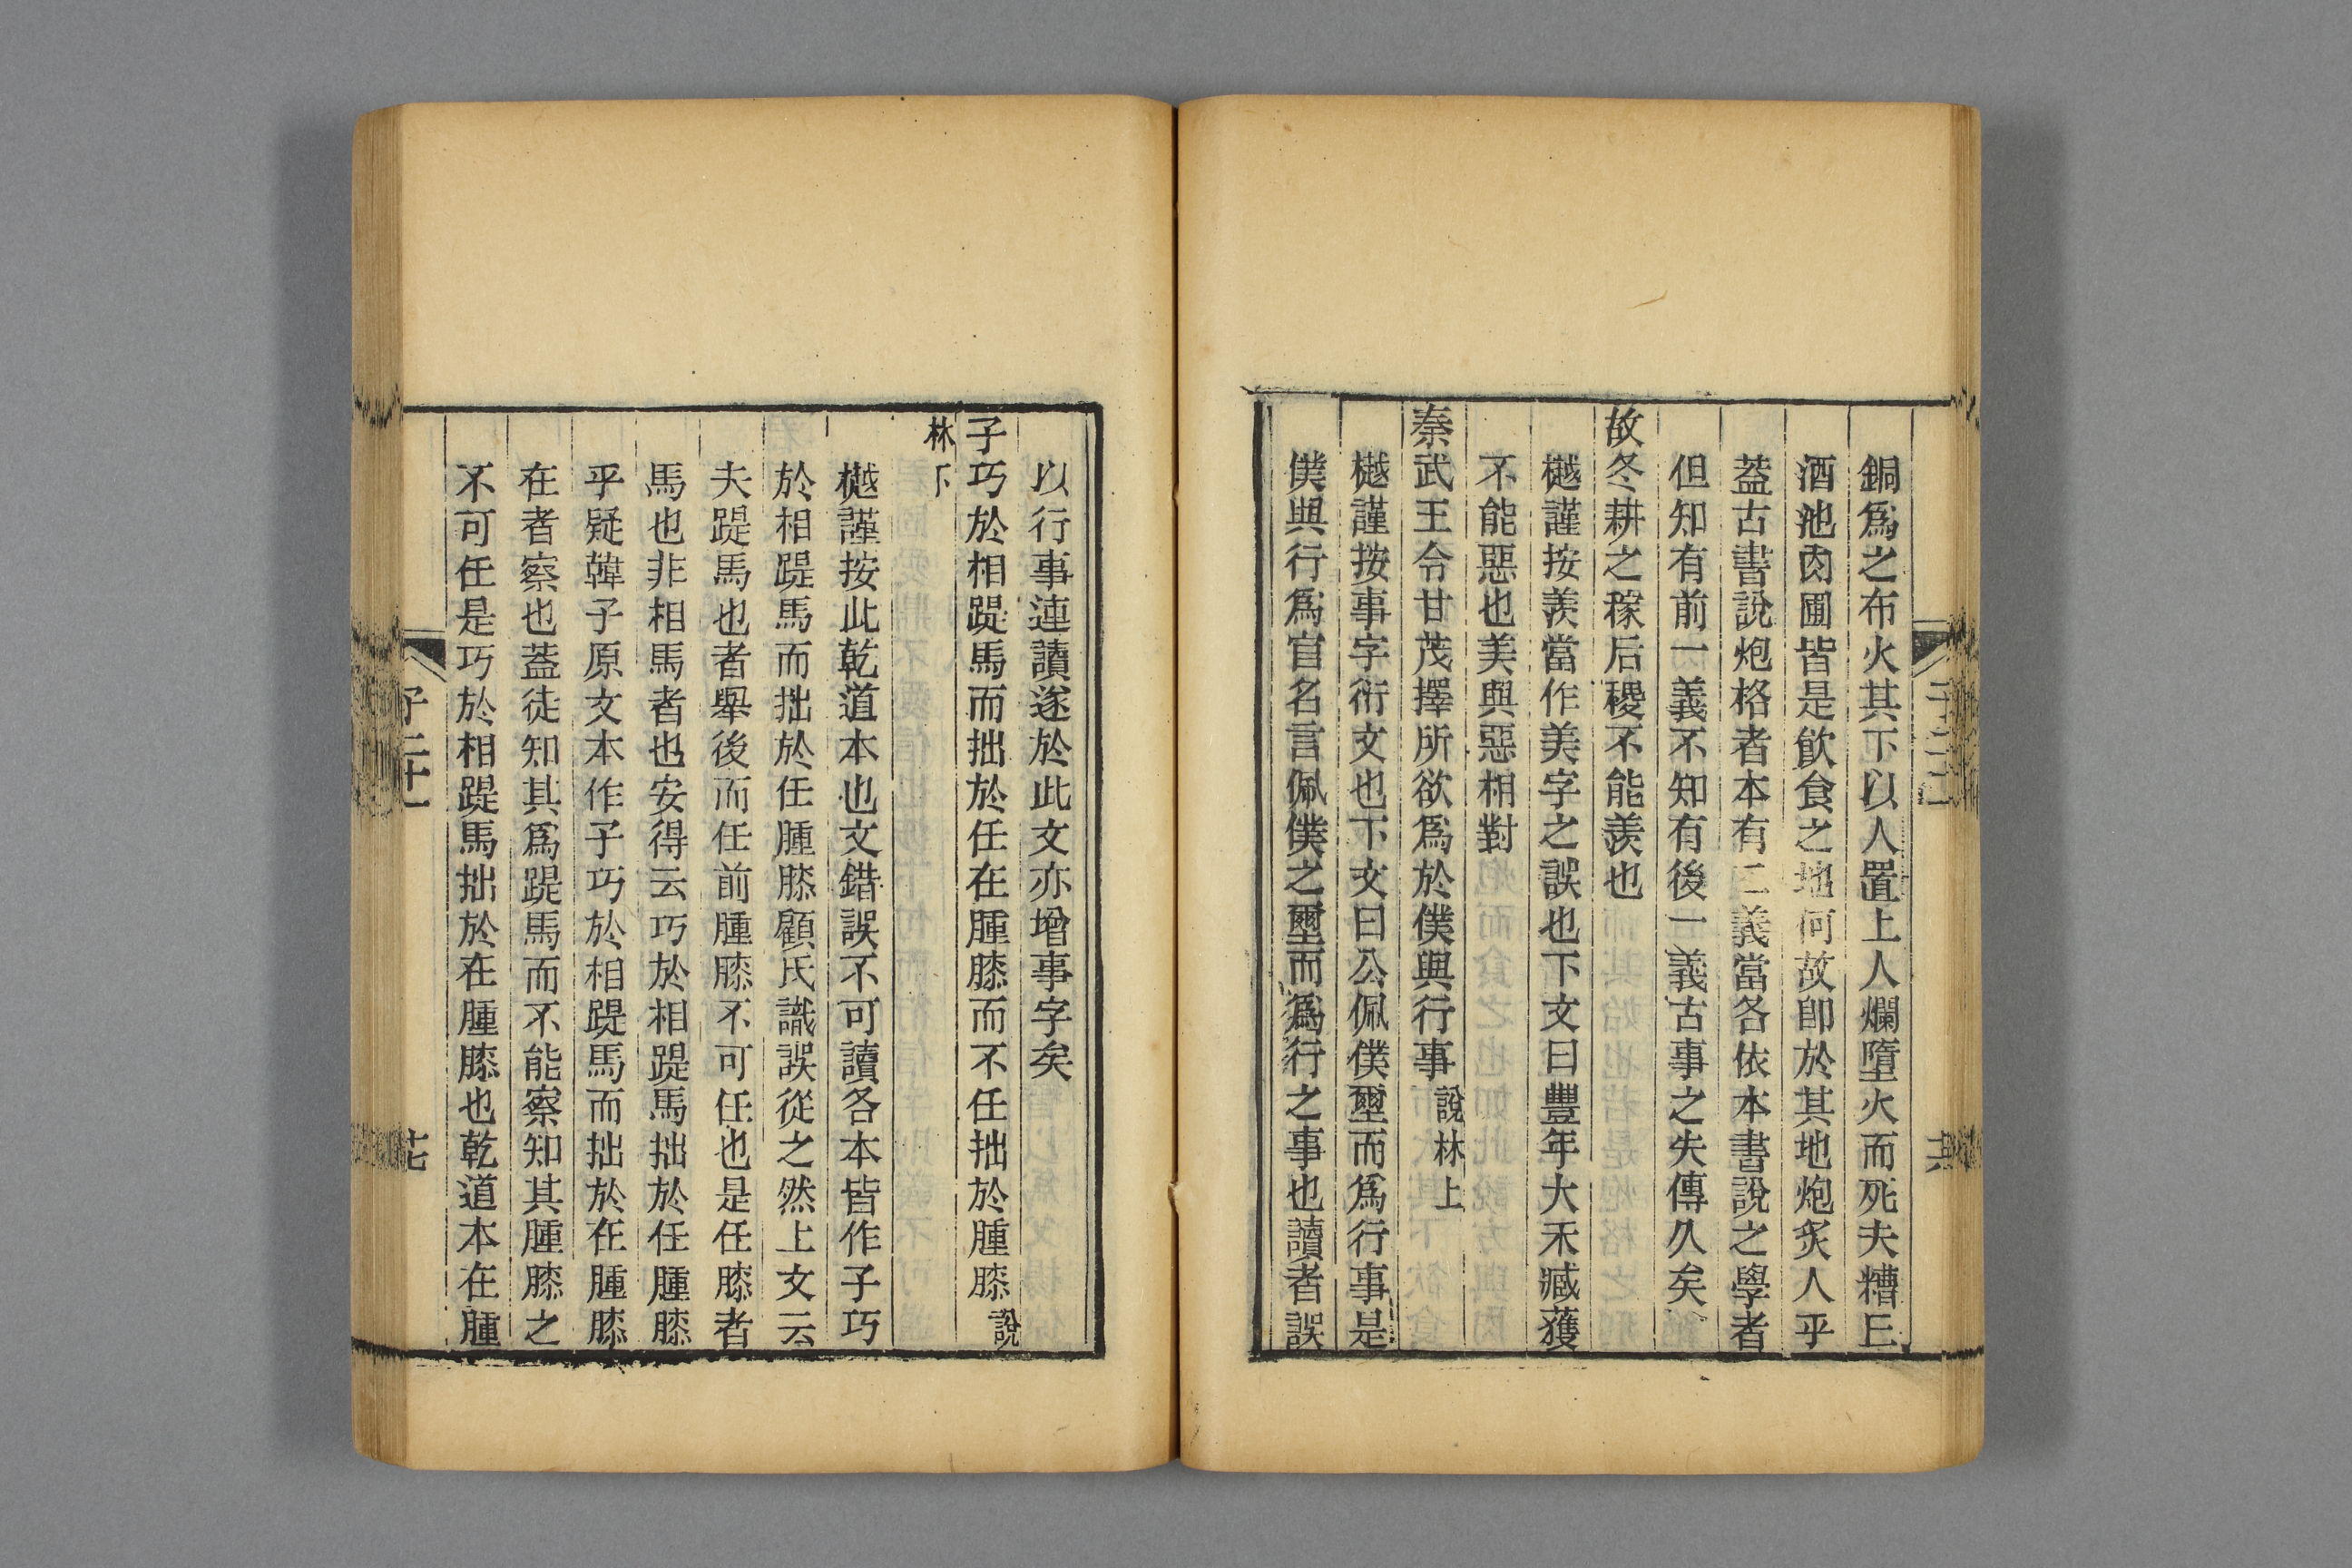 銅爲之布火其下以人置上人爛墮火而死夫糟丘
酒池肉圃皆是飲食之地何故卽於其地炮炙人乎
蓋古書說炮格者本有二義當各依本書說之學者
但知有前一義不知有後一義古事之失傳久矣
故冬耕之稼后稷不能羨也
樾謹按羨當作美字之誤也下文曰豐年大禾臧獲
不能惡也美與惡相對
秦武王令甘茂擇所欲爲於僕與行事說林上
樾謹按事字衍文也下文曰公佩僕璽而爲行事是
僕與行爲官名言佩僕之璽而爲行之事也讀者誤
以行事連讀遂於此文亦增事字矣
子巧於相踶馬而拙於任在腫膝而不任拙於腫膝說
林下
樾謹按此乾道本也文錯誤不可讀各本皆作子巧
於相踶馬而拙於任腫膝顧氏識誤從之然上文云
夫踶馬也者舉後而任前腫膝不可任也是任膝者
馬也非相馬者也安得云巧於相踶馬拙於任腫膝
乎疑韓子原文本作子巧於相踶馬而拙於在腫膝
在者察也蓋徒知其爲踶馬而不能察知其腫膝之
不可任是巧於相踶馬拙於在腫膝也乾道本在腫
子二十一